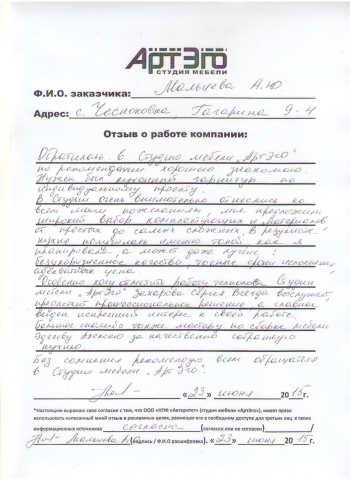 АртЭго
СТУДИЯ МЕБЕЛИ
Ф.И.О. заказчика: Мальцева А.Ю
Адрес: с. Чесноковка Гагарина 9-4
Отзыв о работе компании:
Обратилась в Студию мебели "АртЭго"
по рекомендации хорошего знакомого.
Нужен был кухонный гарнитур по
индивидуальному проекту.
В Студии очень внимательно отнеслись ко
всем моим пожеланиям, мне предложили
широкий выбор комплектующих и материалов
от простых до самых сложных. В результате
кухня получилась именно такой как я
планировала а может даже лучше!
Безукоризненное качество, точные сроки исполнения
адекватные цены
Особенно хочу отметить работу технолога Студии
мебели "АртЭго" Захарова Сергея Всегда выслушает,
предложит профессиональное решение а главное
виден искренний интерес к своей работе.
Большое спасибо также мастеру по сборке мебели
Алексею за качественно собранную
кухню
Без сомнения рекомендую всем обращаться
в Студию мебели "АртЭго".
«23» июня 2015г.
*Настоящим выражаю свое согласие с тем, что ООО «КПФ «Авторитет» (студия мебели «АртЭго»), имеет право
использовать написанный мной отзыв в рекламных целях, размещая его в свободном доступе для третьих лиц в своих
информационных источниках согласна (согласен или не согласен)
Мальцева А.Ю (подпись / Ф.И.О расшифровка). «23» июня 2015г.